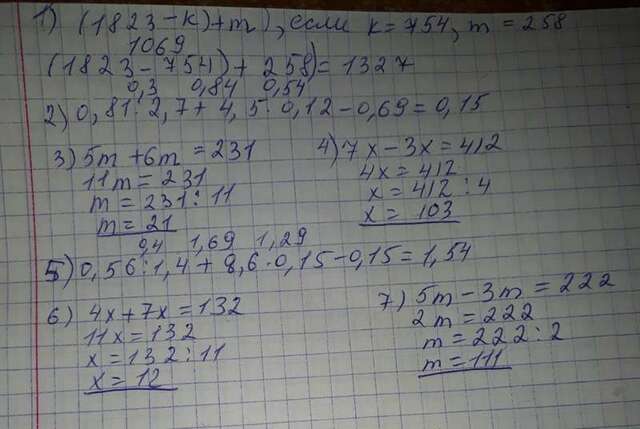 1) (1823-k)+m), если k=754, m=258
1069
(1823-754)+258)=1327
0,3 0,84 0,54
2) 0,81:2,7+4,5·0,12-0,69=0,15
3) 5m+6m=231
11m=231
m=231:11
m=21
4) 7x-3x=412
4x=412
x=412:4
x=103
0,4 1,69 1,29
5) 0,56:1,4+8,6·0,15-0,15=1,54
6) 4x+7x=132
11x=132
x=132:11
x=12
7) 5m-3m=222
2m=222
m=222:2
m=111